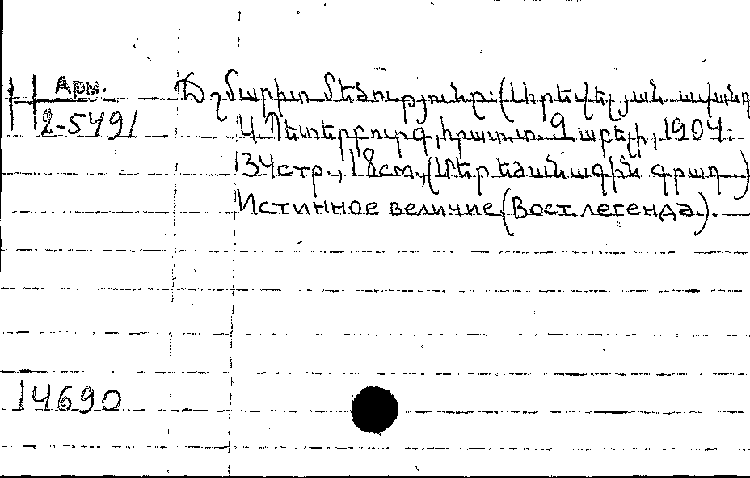 Арм.
2-5491
Ճշմարիտ մեծությունը (Արեվելյան ավանդ
Ս. Պետերբուրգ, հրատ. 1904.
134 стр., 18 см., (Մեր գրադ.)
Истинное величие (Вост. легенда).
14690